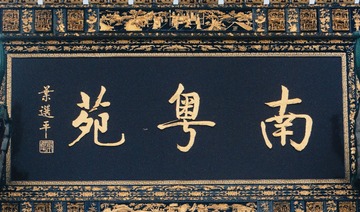 南粤苑
葉選平